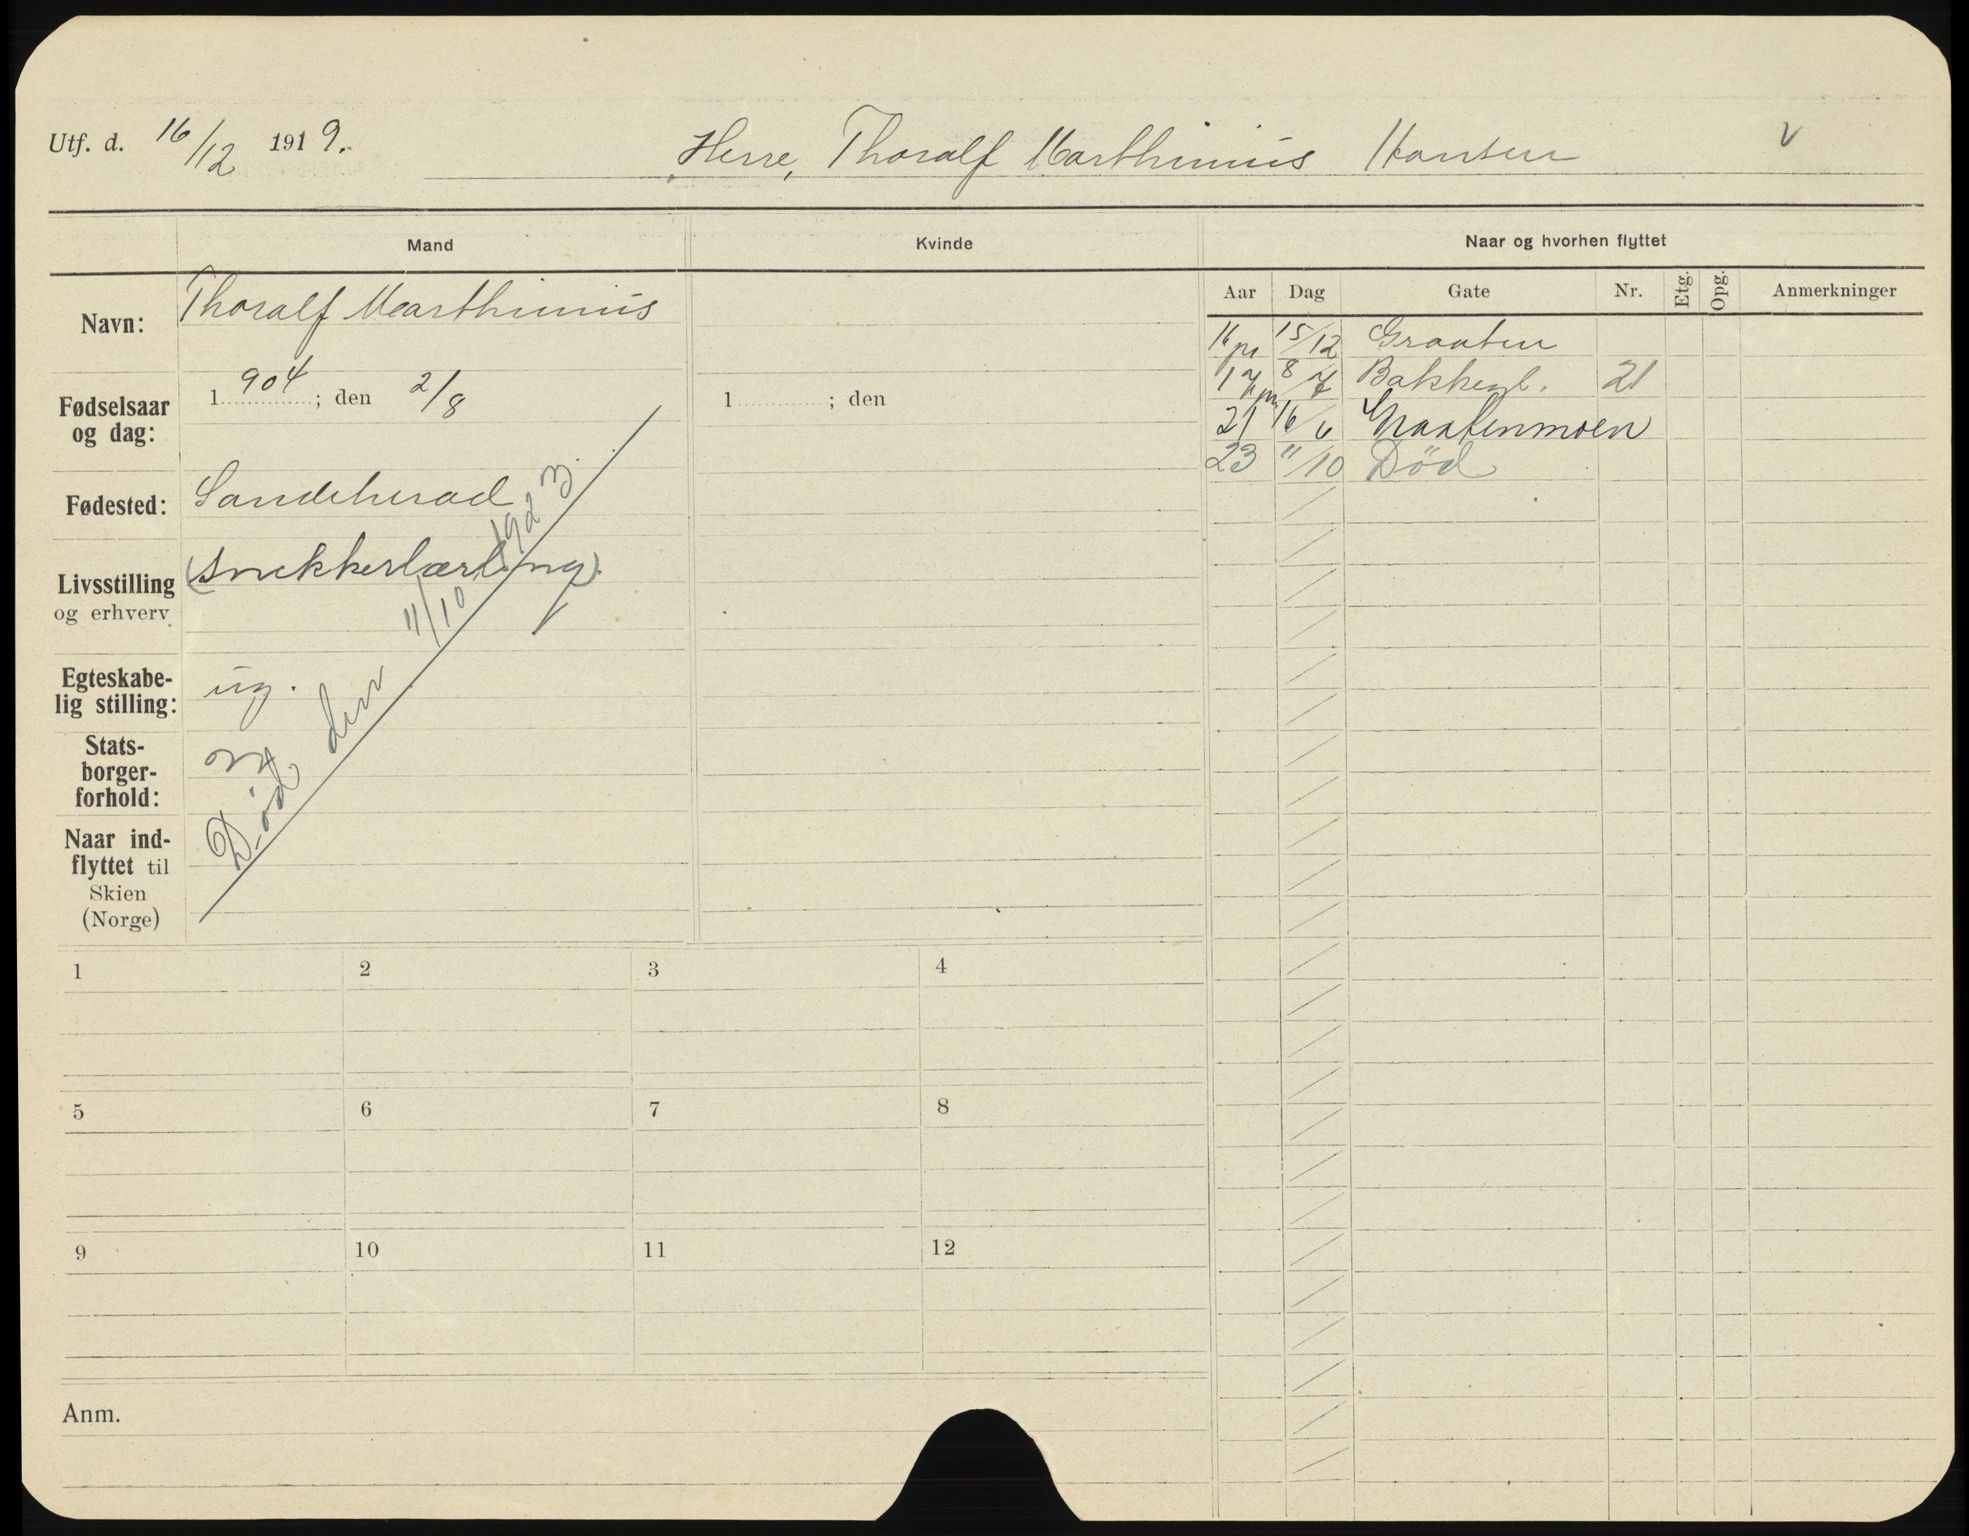 Utf. d. 16/12 1919. Herre, Thoralf Marthinius Hansen v
Mand Kvinde Naar og hvorhen flyttet
Aar Dag Gate Nr. Etg. Opg. Anmerkninger
Navn: Thoralf Marthinius
Fødselsaar og dag: 1904; den 2/8 1 ; den
Fødested: Sandeherad
Livsstilling og erhverv (snekkerlærling)
Egteskabe-
lig stilling: ug.
Stats-
borger-
forhold: n
Naar ind-
flyttet til
Skien
(Norge)
Død den 11/10 1923.
16 15/12 Graaten
17 8/7 Bakkegt. 21
21 16/6 Graatenmoen
23 11/10 Død
1 2 3 4
5 6 7 8
9 10 11 12
Anm.